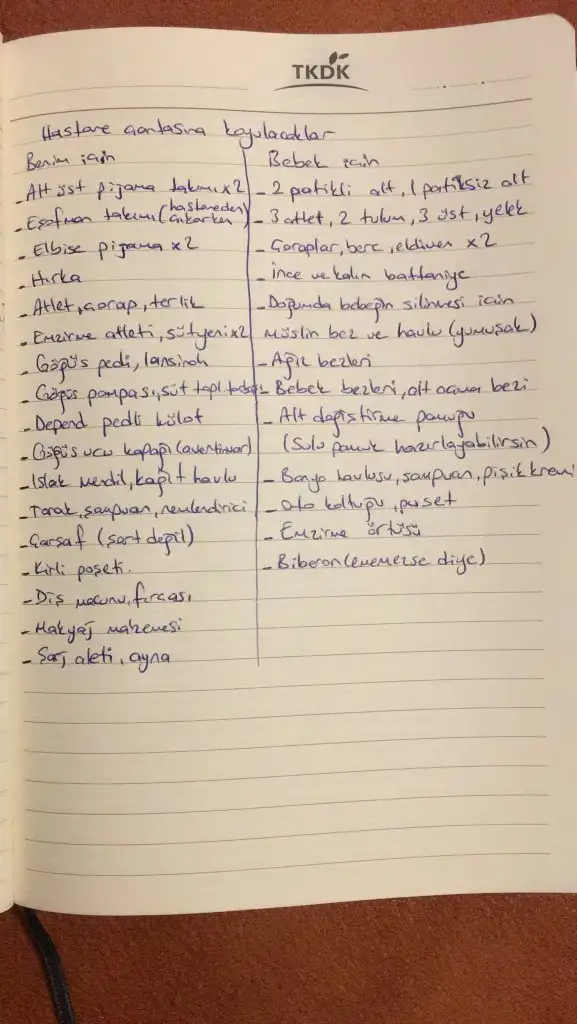 TKDK
Hastane çantasına koyulacaklar
Benim için
- Alt üst pijama takımı x2
- Eşofman takımı (hastaneden çıkarken)
- Elbise pijama x2
- Hırka
- Atlet, çorap, terlik
- Emzirme atleti, sütyeni x2
- Göğüs pedi, lansinoh
- Göğüs pompası, süt topl.
- Depend pedli külot
- Göğüs ucu kapağı (aventinvar)
- Islak mendil, kağıt havlu
- Tarak, şampuan, nemlendirici
- Çarşaf (şart değil)
- Kirli poşeti.
- Diş macunu, fırçası
- Makyaj malzemesi
- Şarj aleti, ayna
Bebek için
- 2 patikli alt, 1 patiksiz alt
- 3 atlet, 2 tulum, 3 üst, yelek
- Çoraplar, bere, eldiven x2
- İnce ve kalın battaniye
- Doğumda bebeğin silinmesi için
müslin bez ve havlu (yumuşak)
- Ağız bezleri
- Bebek bezleri, alt açma bezi
- Alt değiştirme pamuğu
(Sulu pamuk hazırlayabilirsin)
- Banyo havlusu, şampuan, pişik kremi
- Oto koltuğu, puset
- Emzirme örtüsü
- Biberon (ememezse diye)